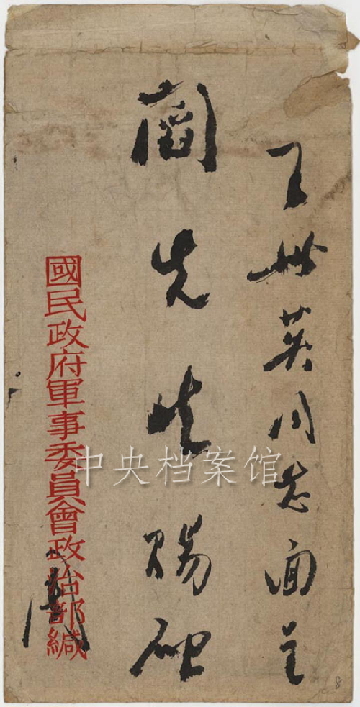 王世英同志面呈
閻先生賜啟
國民政府軍事委員會政治部緘
周
中央档案馆
8